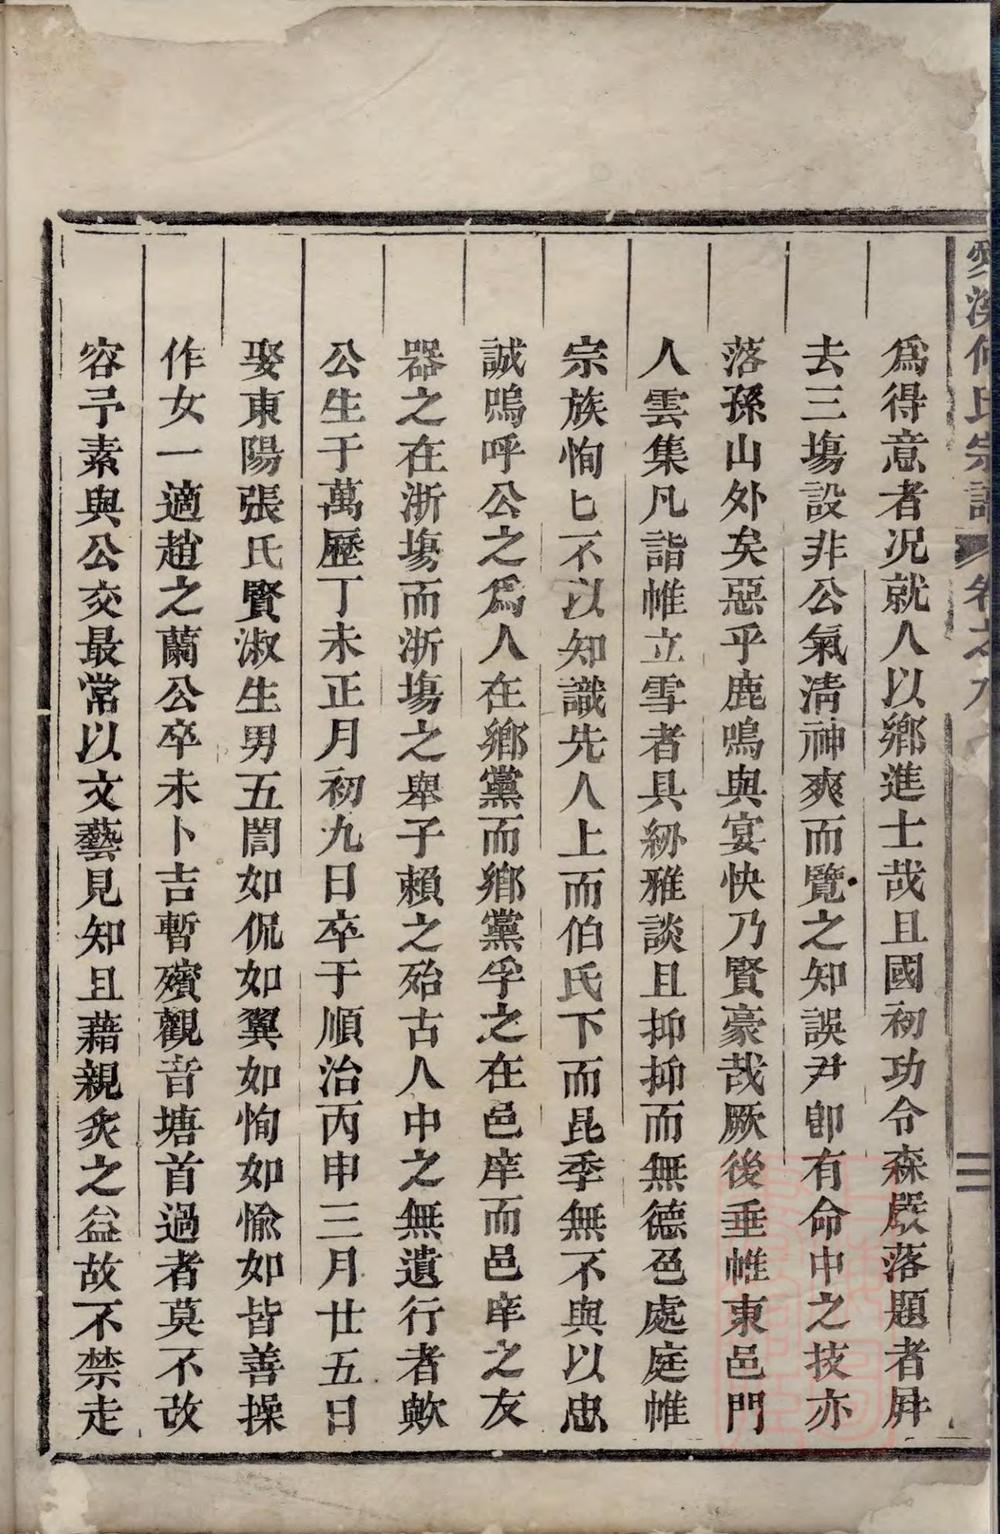 何氏宗譜 卷之九 二
為得意者况就人以鄉進士哉且國初功令森嚴落題者屛
去三塲設非公氣清神爽而覽之知誤尹卽有命中之技亦
落孫山外矣惡乎鹿鳴與宴快乃賢豪哉厥後垂帷東邑門
人雲集凡詣帷立雪者具紛雅談且抑抑而無德色處庭帷
宗族恂匕不以知識先人上而伯氏下而昆季無不與以忠
誠嗚呼公之為人在鄉黨而鄉黨孚之在邑庠而邑庠之友
器之在浙塲而浙塲之舉子賴之殆古人中之無遺行者歟
公生于萬歷丁未正月初九日卒于順治丙申三月廿五日
娶東陽張氏賢淑生男五誾如侃如翼如恂如愉如皆善操
作女一適趙之蘭公卒未卜吉暫殯觀音塘首過者莫不改
容予素與公交最常以文藝見知且藉親炙之益故不禁走